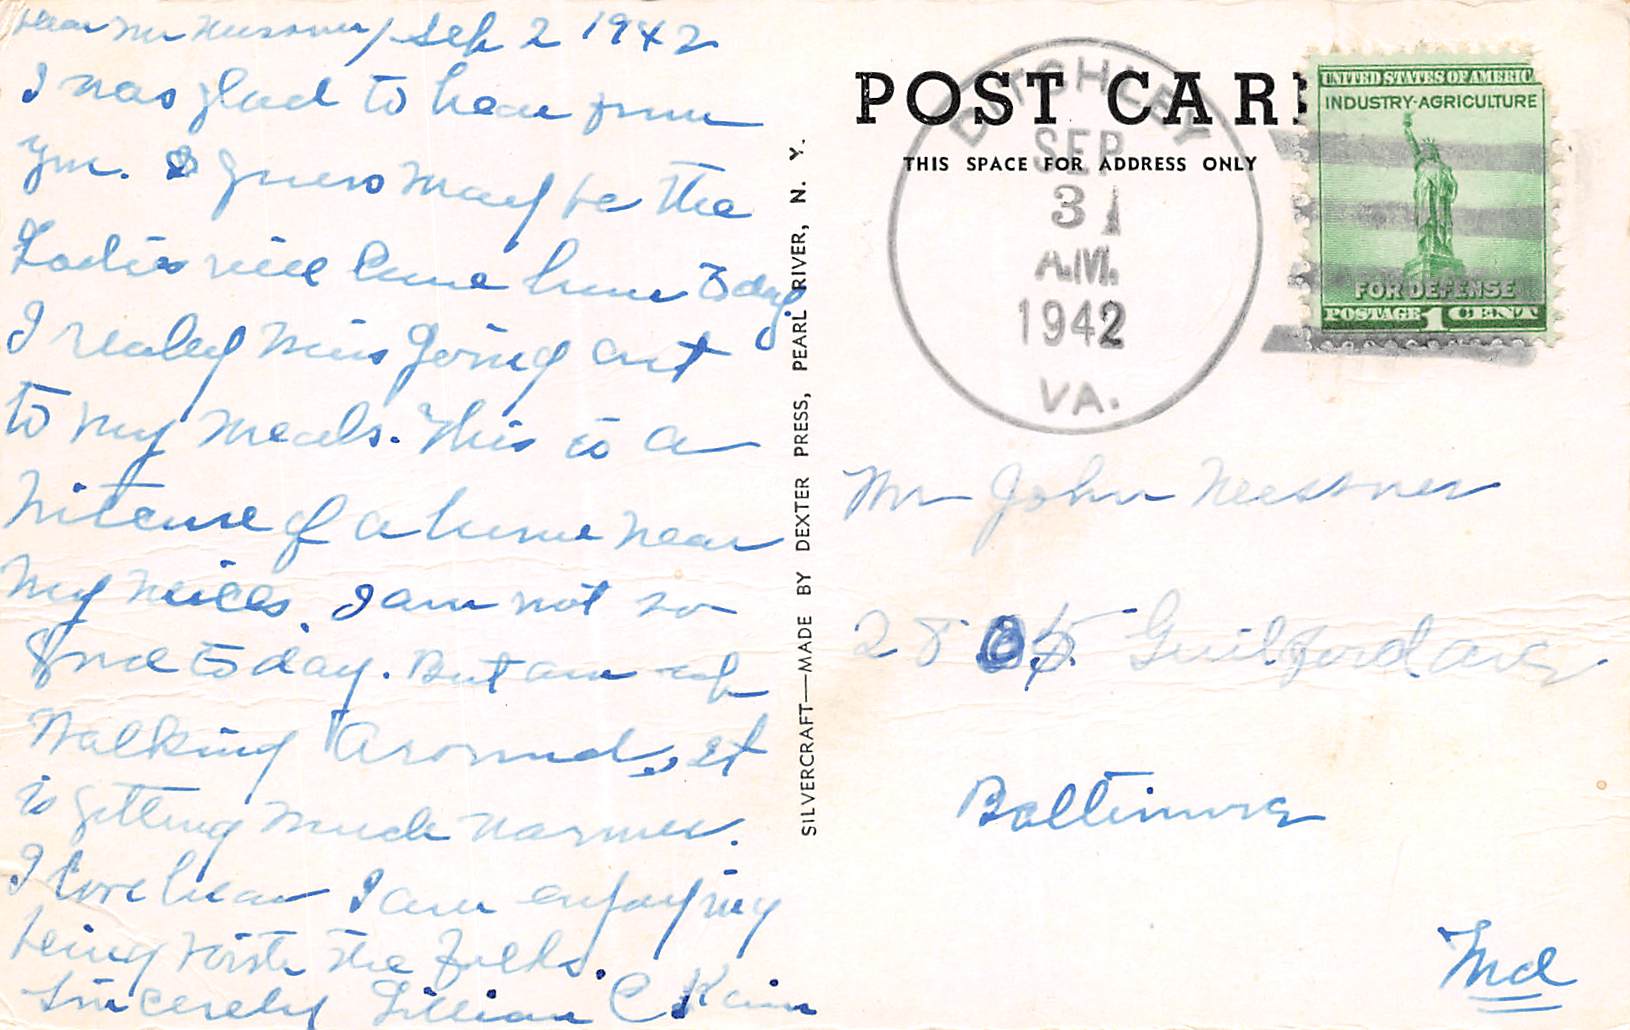 Dear Mr Neessner / Sep 2 1942
I was glad to hear from
you. I guess may be the
Ladies will come home today.
I realey miss going out
to my meals. This is a
picture of a home near
my neices. I am not so
good today. But am up
walking around, it
is getting much warmer.
I love hear I am enjoying
being with the folks.
Sincerely Lillian C Kain
SILVERCRAFT—MADE BY DEXTER PRESS, PEARL RIVER, N. Y.
POST CAR
THIS SPACE FOR ADDRESS ONLY
DITCHLEY
SEP
3
A.M.
1942
VA.
UNITED STATES OF AMERIC
INDUSTRY-AGRICULTURE
FOR DEFENSE
POSTAGE 1 CENT
Mr John Neessner
2805 Guilford ave
Baltimore
Md